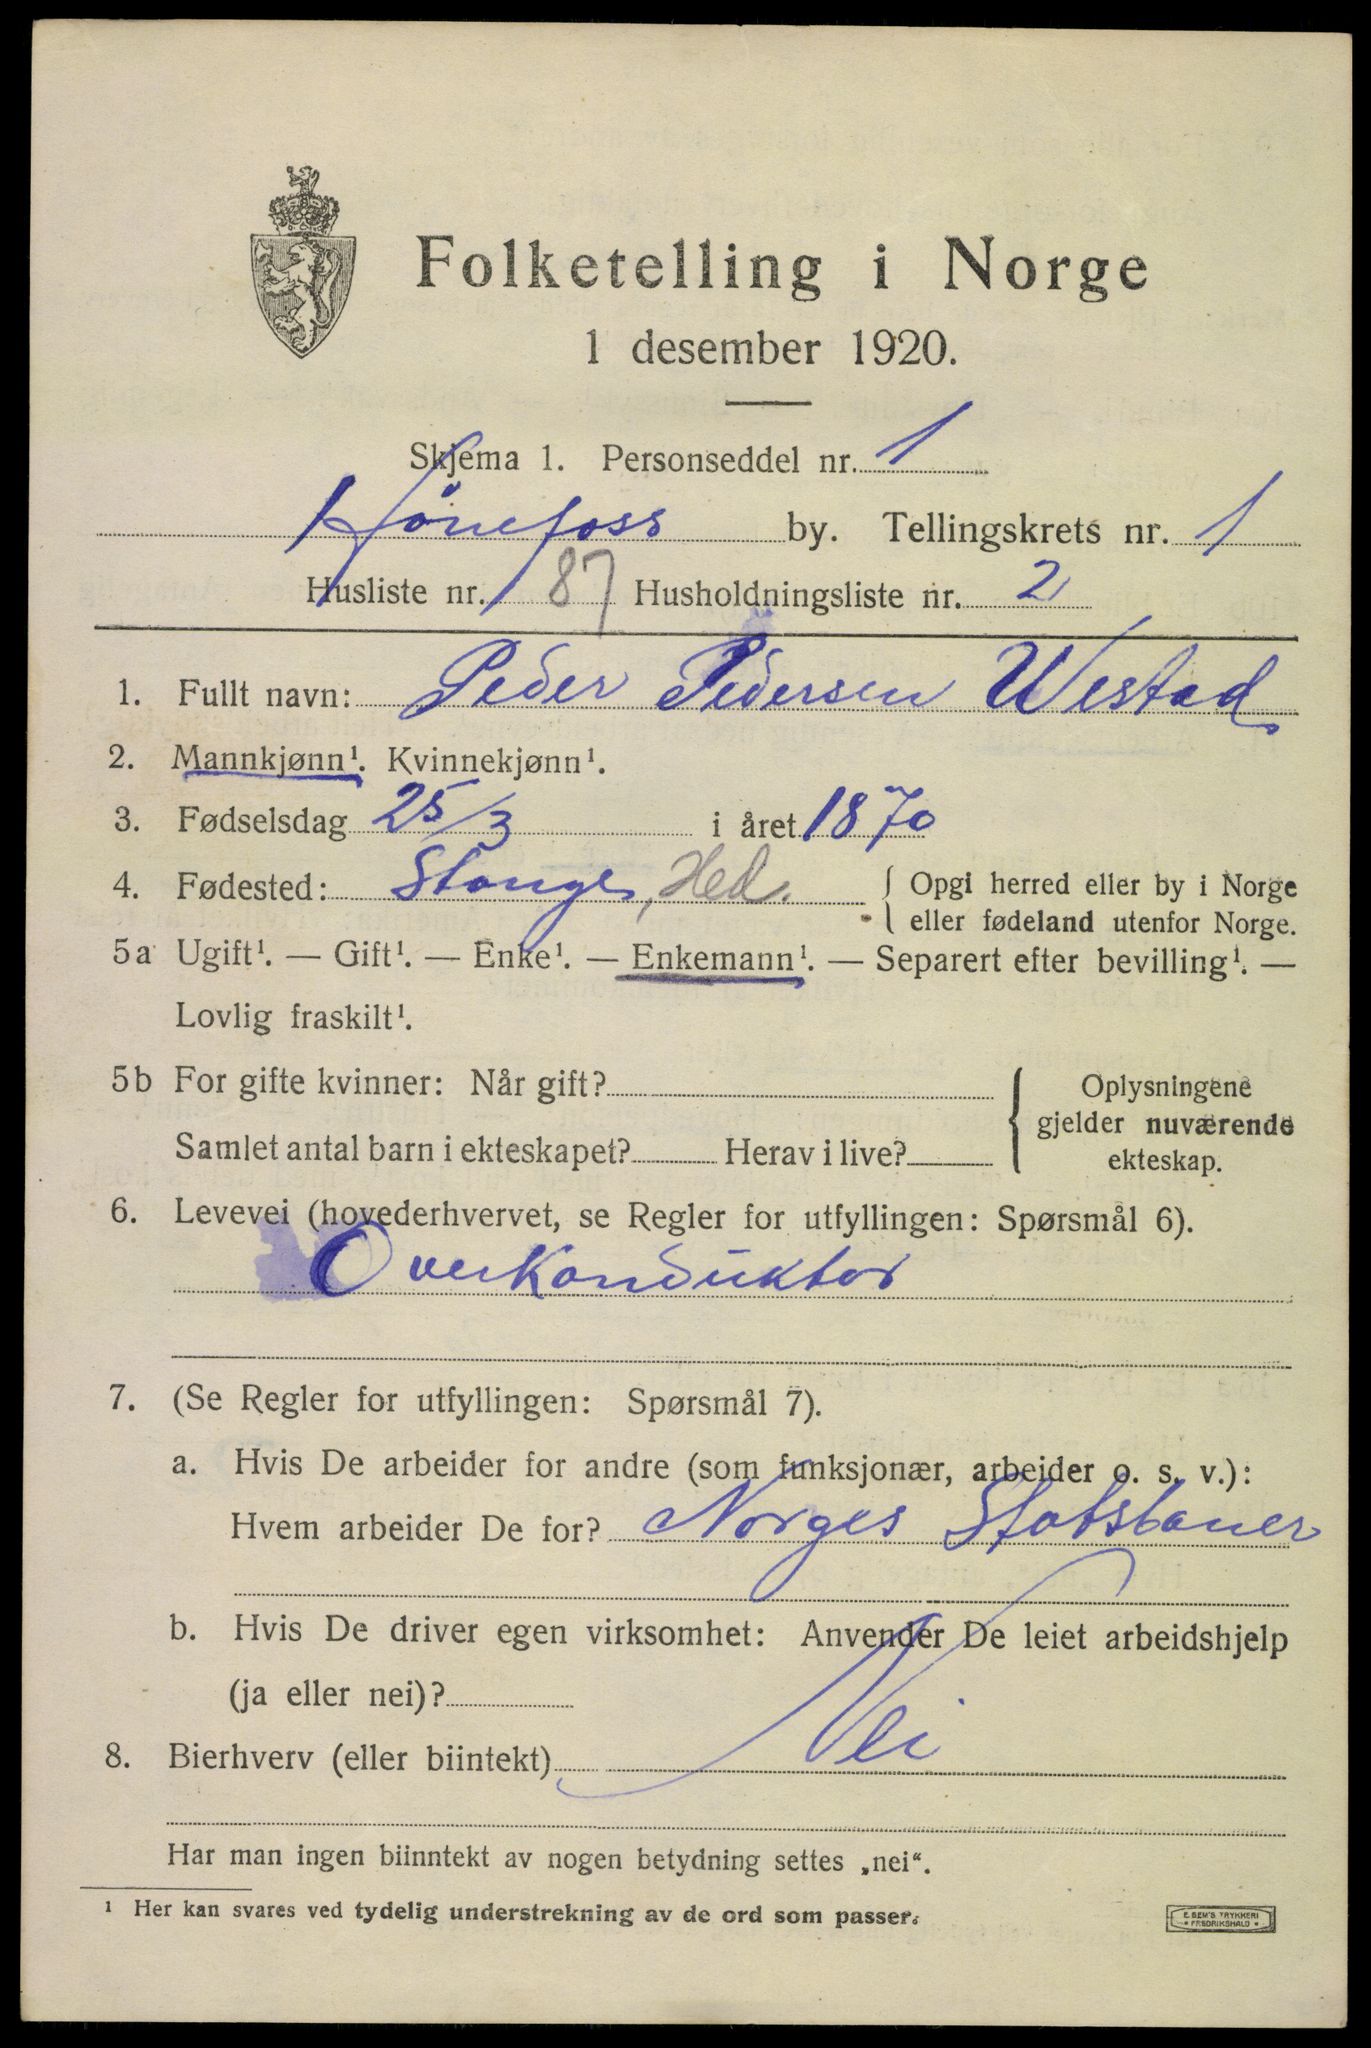 Folketelling i Norge
1 desember 1920.
Skjema 1. Personseddel nr. 1
Hönefoss by. Tellingskrets nr. 1
Husliste nr. 87 Husholdningsliste nr. 2
1. Fullt navn: Peder Pedersen Westad
2. Mannkjønn¹. Kvinnekjønn¹.
3. Fødselsdag 25/3 i året 1870
4. Fødested: Stange, Hed. { Opgi herred eller by i Norge
eller fødeland utenfor Norge.
5a Ugift¹. — Gift¹. — Enke¹. — Enkemann¹. — Separert efter bevilling¹. —
Lovlig fraskilt¹.
5b For gifte kvinner: Når gift?
Samlet antal barn i ekteskapet? Herav i live?
Oplysningene
gjelder nuværende
ekteskap.
6. Levevei (hovederhvervet, se Regler for utfyllingen: Spørsmål 6).
Overkonduktor
7. (Se Regler for utfyllingen: Spørsmål 7).
a. Hvis De arbeider for andre (som funksjonær, arbeider o. s. v.):
Hvem arbeider De for? Norges Statsbaner
b. Hvis De driver egen virksomhet: Anvender De leiet arbeidshjelp
(ja eller nei)?
8. Bierhverv (eller biintekt) Nei
Har man ingen biinntekt av nogen betydning settes „nei“.
¹ Her kan svares ved tydelig understrekning av de ord som passer.
E. SEM'S TRYKKERI
FREDRIKSHALD